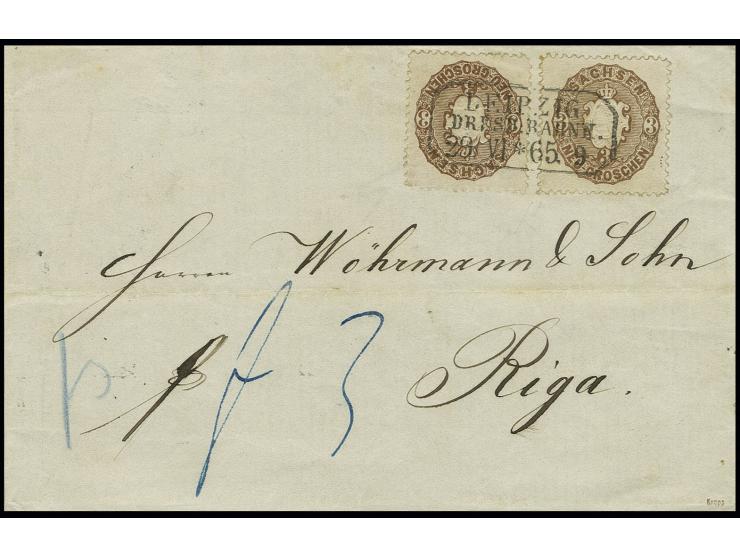 SACHSEN
3 3
NEU-GROSCHEN
SACHSEN
3 3
NEU-GROSCHEN
LEIPZIG.
DRESD.BAHNH.
29 VI * 65. 9
Herren Wöhrmann & Sohn
Riga.
f 3
Krepp